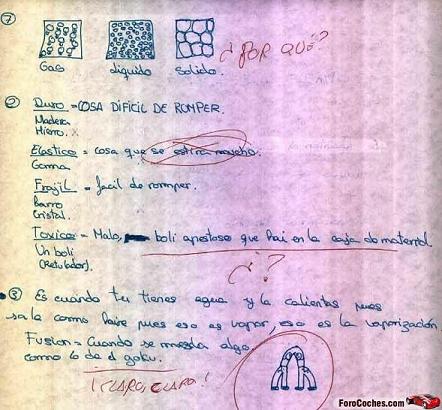 ⑦
Gas líquido Solido. ¿POR QUÉ?
② Duro = COSA DIFICIL DE ROMPER.
Madera
Hierro. x
Elastico = cosa que se estira moucho.
Goma
Frajil = facil de romper.
Barro
Cristal.
Toxico = Malo, boli apestoso que hai en la caja de material.
Un boli
(Retulador).
¿?
③ Es cuando tu tienes agua y la calientas pues
sala como haire pues eso es vapor, eso es la vaporización
Fusion = Cuando se mezcla algo
como lo de el goku.
¡CLARO, CLARO!
ForoCoches.com